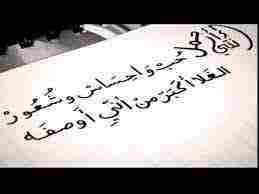 حُب وَ احسَاسْ وَ شُعُورْ
الغَلا أكبَر مِنْ انّي أوصفَه